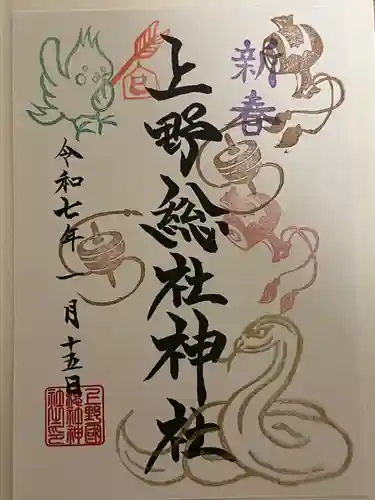 新春
上野総社神社
令和七年一月十五日
巳
上野國
総社神
社之印